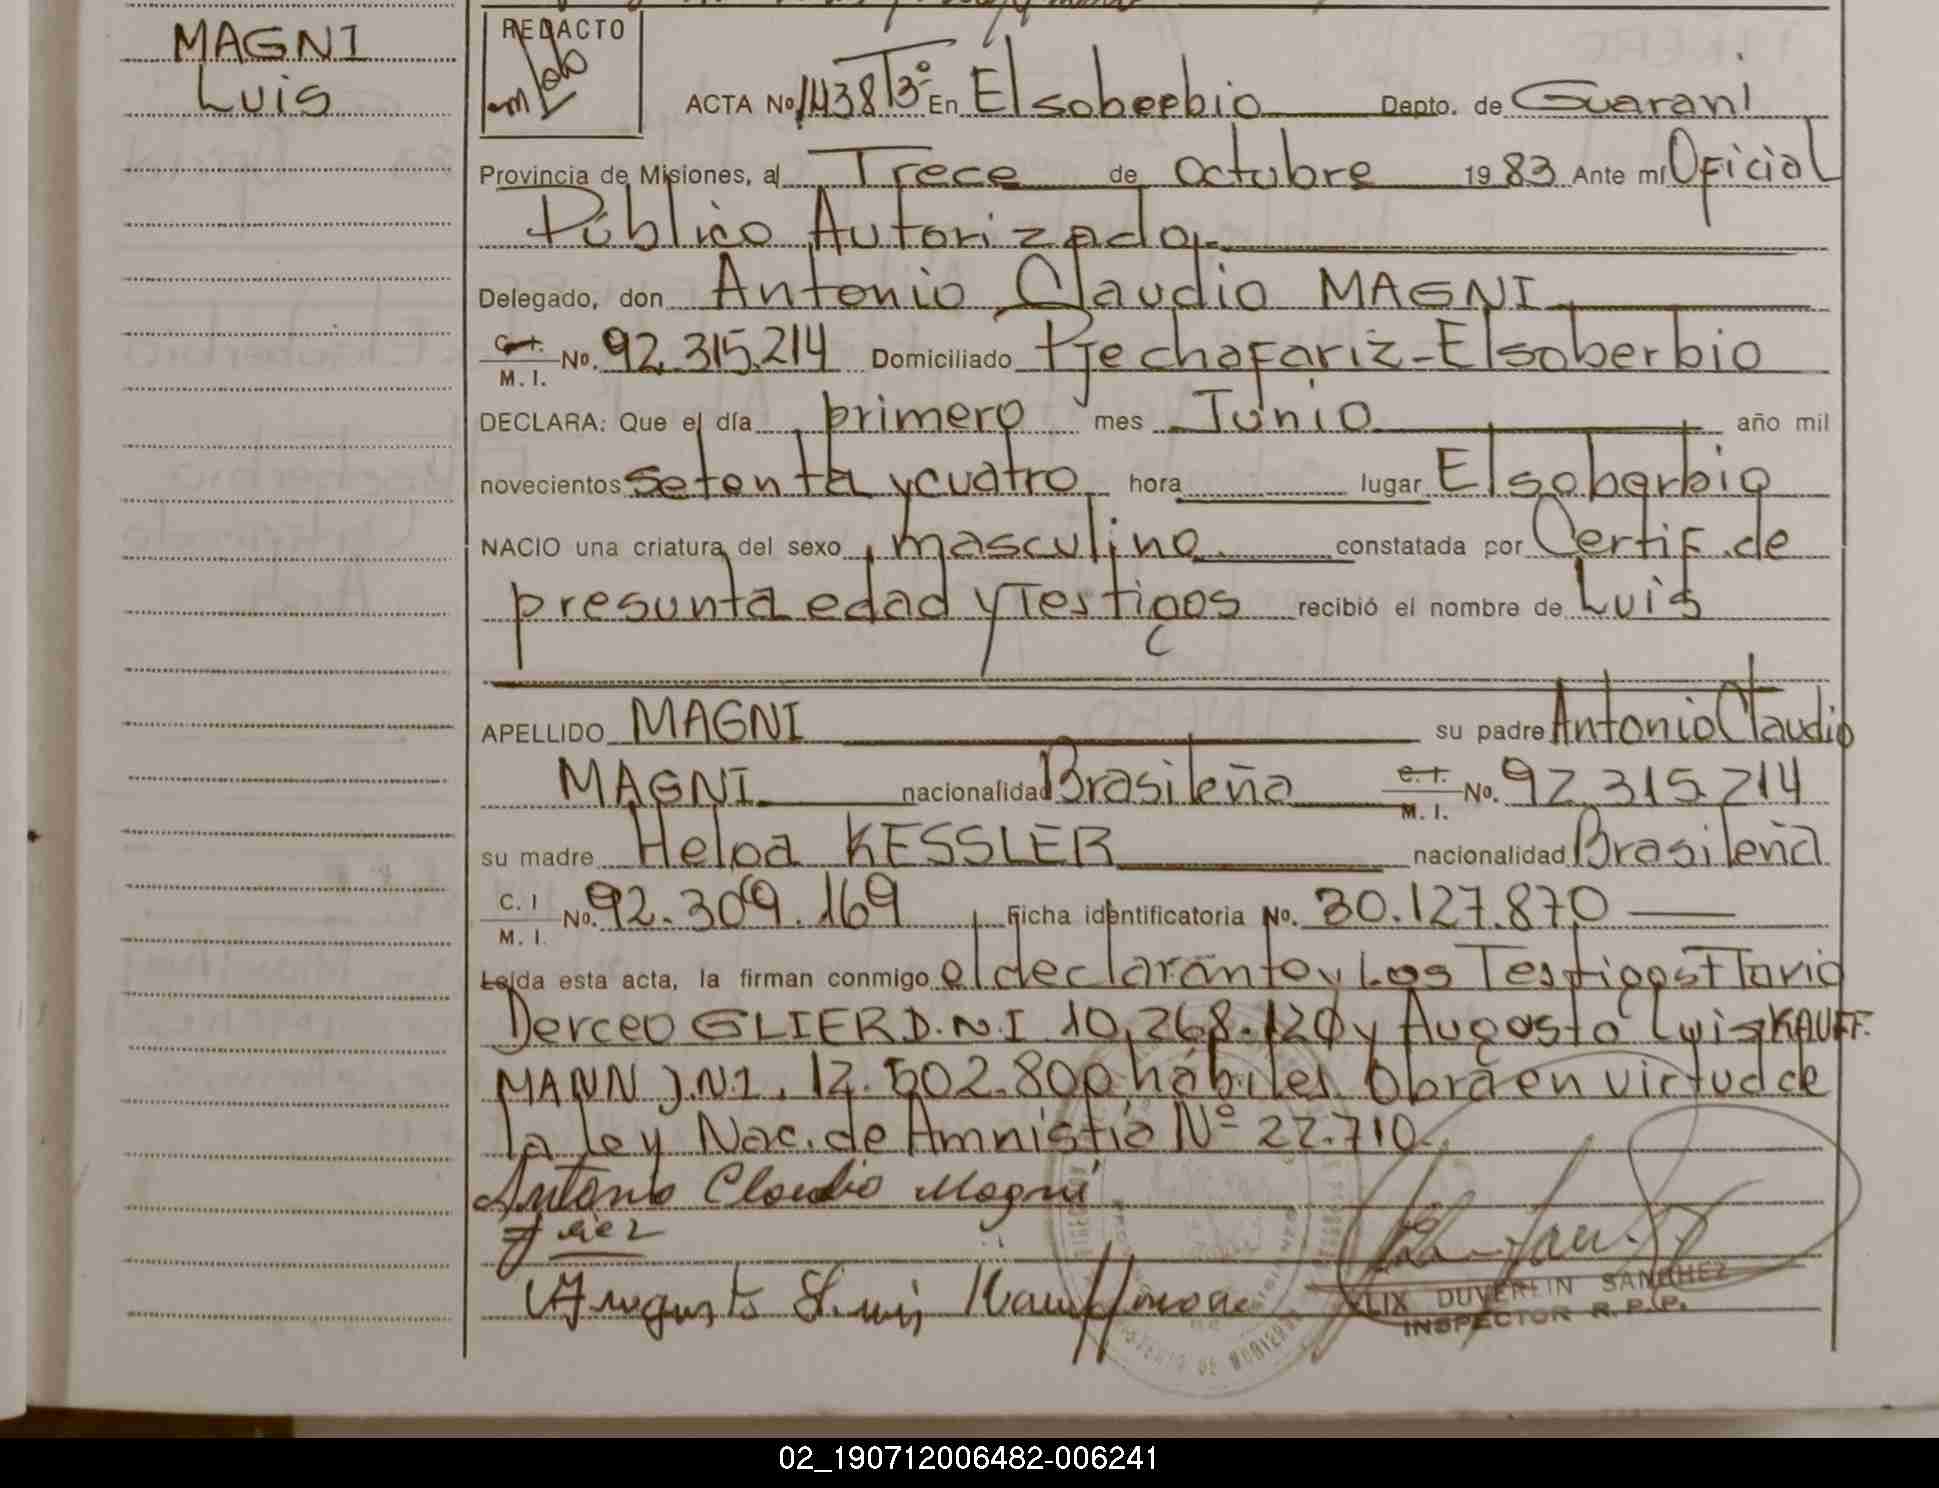 MAGNI
Luis
REDACTO
ACTA No. 1438 T3º En Elsoberbio Depto. de Guarani
Provincia de Misiones, al Trece de octubre 1983 Ante mí Oficial
Público Autorizado.
Delegado, don Antonio Claudio MAGNI
C. I. M. I. No. 92.315.214 Domiciliado Pje chafariz - Elsoberbio
DECLARA: Que el día primero mes Junio año mil
novecientos setenta y cuatro hora lugar Elsoberbio
NACIO una criatura del sexo masculino constatada por Certif. de
presunta edad y Testigos recibió el nombre de Luis
APELLIDO MAGNI su padre Antonio Claudio
MAGNI nacionalidad Brasileña C. I. M. I. No. 92.315.214
su madre Heloa KESSLER nacionalidad Brasileña
C. I M. I. No. 92.309.169 Ficha identificatoria No. 30.127.870
Leída esta acta, la firman conmigo el declarante y Los Testigos Flavio
Derceo GLIER D.N.I 10.268.120 y Augosto Luis KAUFF.
MANN D.N.I. 12.502.800 hábiles. Obra en virtud de
la ley Nac. de Amnistía Nº 22.710.
Antonio Claudio Magni
Augusto Luis Kauffmann
FELIX DUVERLIN SANCHEZ
INSPECTOR R.P.P.
02_190712006482-006241